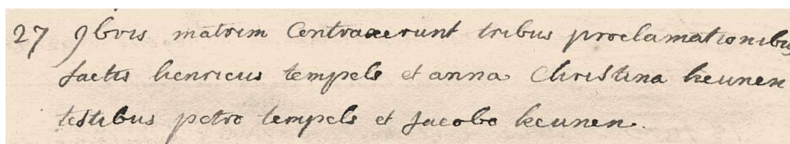 27 9bris matrim Contraxerunt tribus proclamationibus
factis henricus tempels et anna Christina keunen
testibus petro tempels et Jacobo keunen.